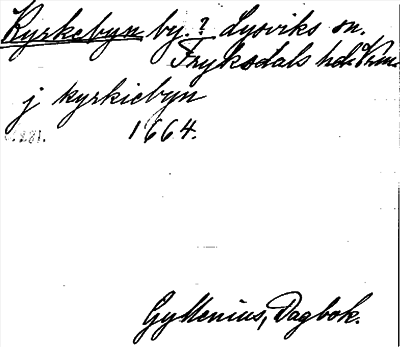 Kyrkebyn by. ? Lysviks sn.
Fryksdals hd.
j kyrkiebyn
1664.
Gyllenius, Dagbok.